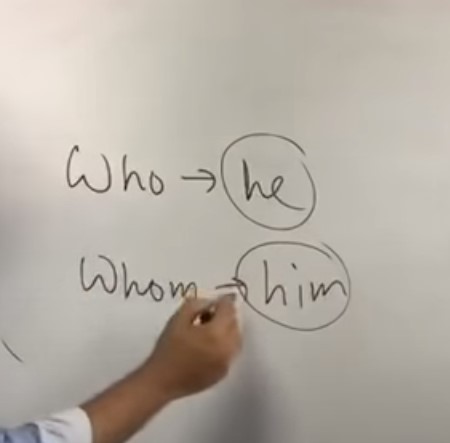 Who → he
Whom → him